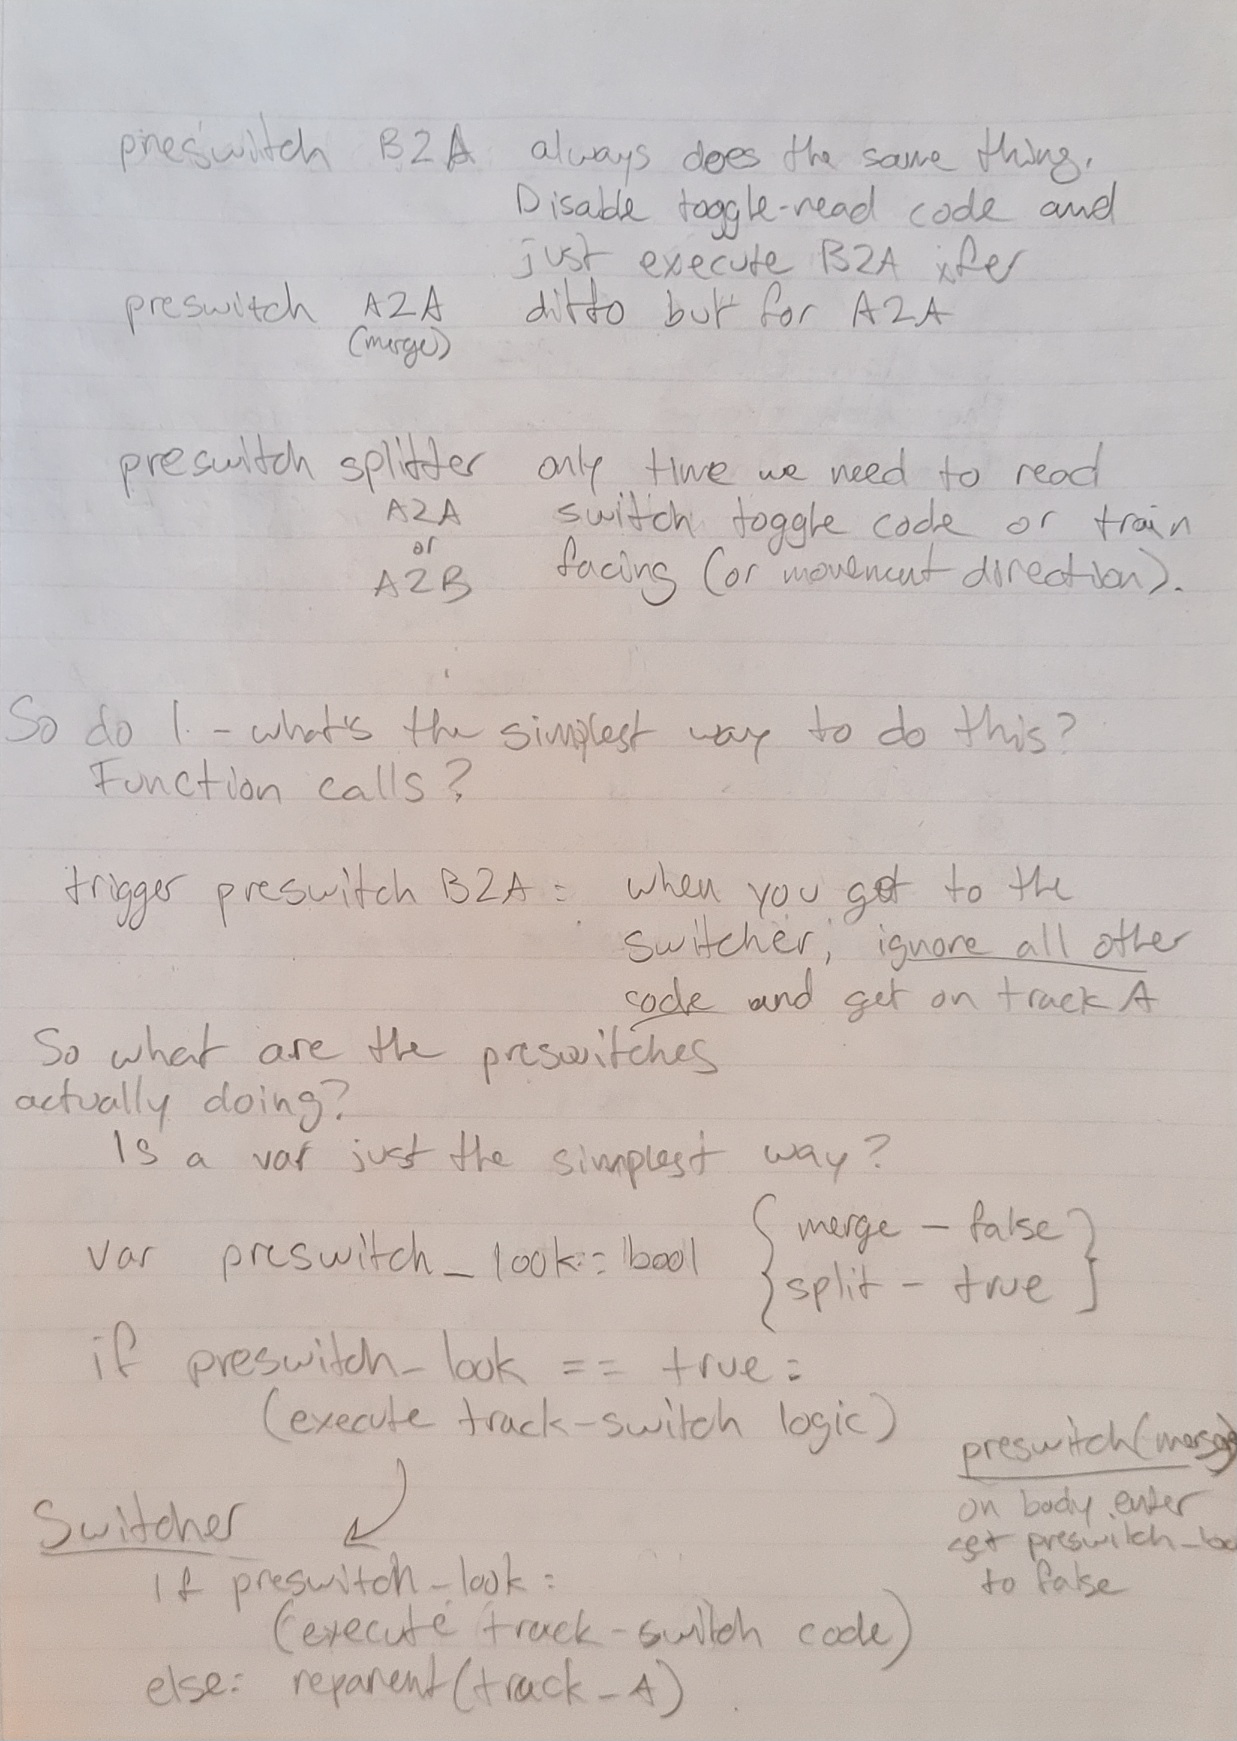 preswitch B2A always does the same thing.
Disable toggle-read code and
just execute B2A xfer
preswitch A2A ditto but for A2A
(merge)
preswitch splitter only time we need to read
A2A switch toggle code or train
or
A2B facing (or movement direction).
So do I - what's the simplest way to do this?
Function calls?
trigger preswitch B2A: when you get to the
switcher, ignore all other
code and get on track A
So what are the preswitches
actually doing?
Is a var just the simplest way?
var preswitch_look: bool { merge - false }
{ split - true }
if preswitch_look == true:
(execute track-switch logic)
preswitch(merge
on body enter
set preswitch_loo
to false
Switcher
if preswitch_look:
(execute track-switch code)
else: reparent(track_A)